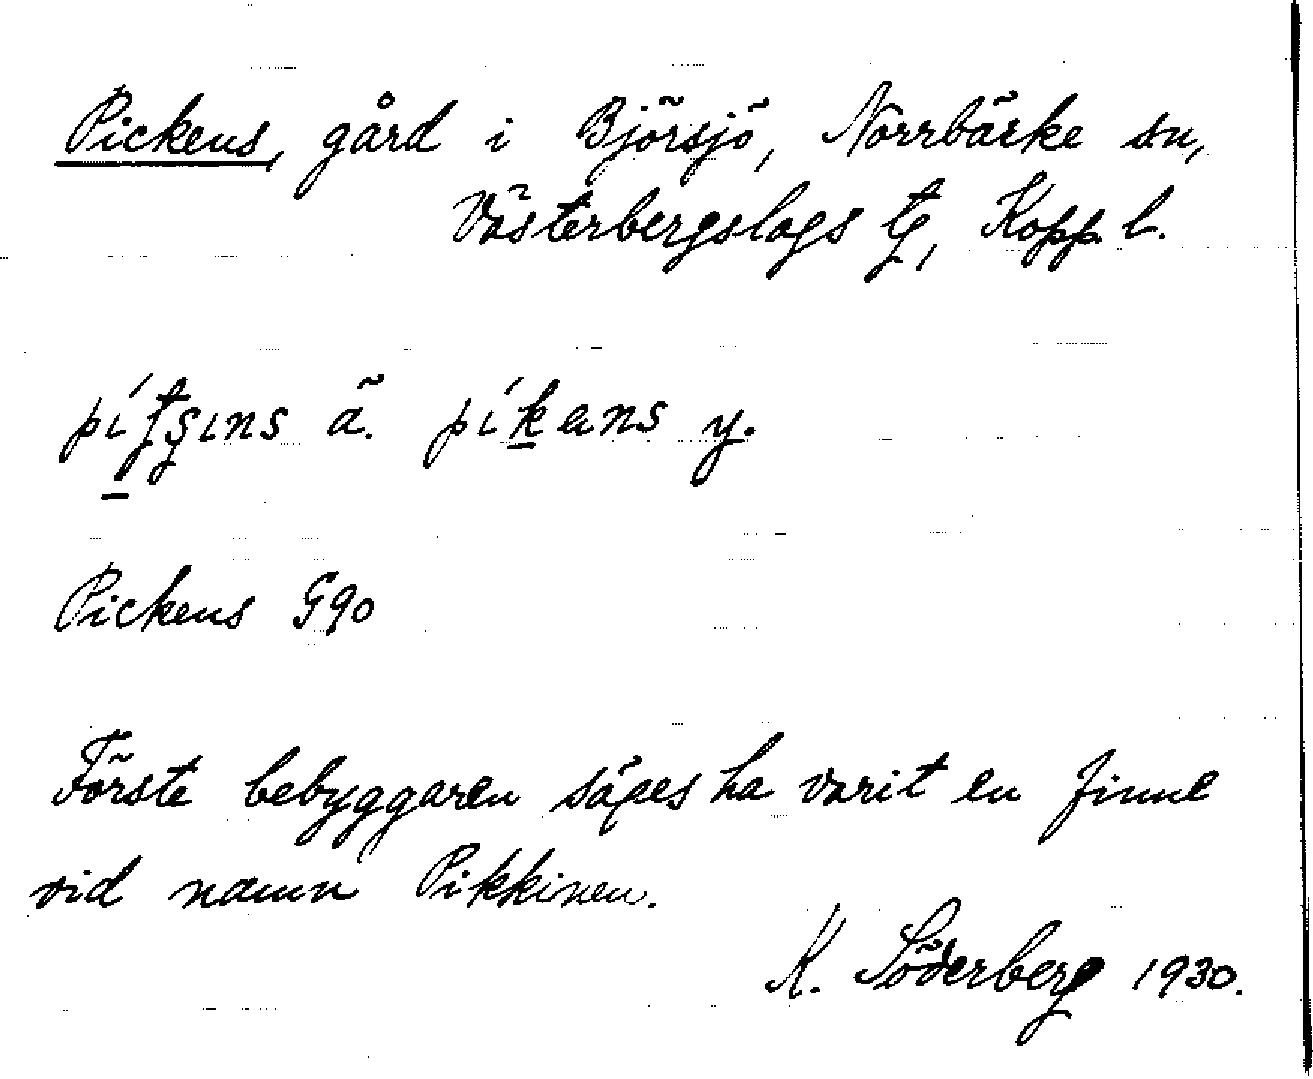 Pickens, gård i Björsjö, Norrbärke sn,
Västerbergslags tg, Kopp. l.
pítʂıns ä. píkans y.
Pickens G90
Förste bebyggaren säges ha varit en finne
vid namn Pikkinen.
K. Söderberg 1930.